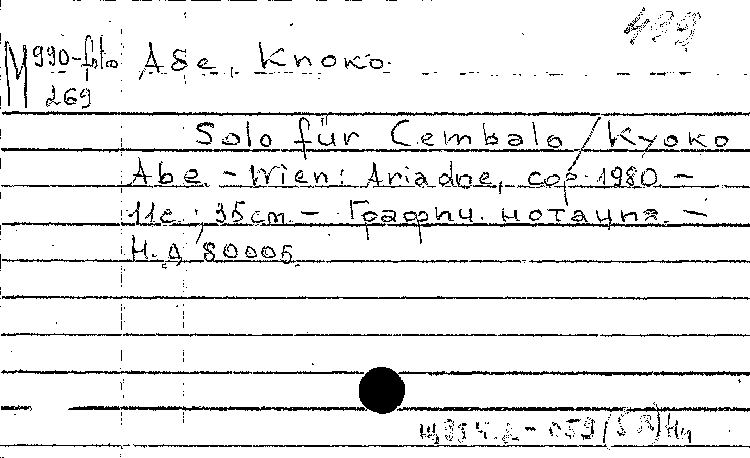 499
М 990-foto Абе, Киоко.
269
Solo für Cembalo / Kyoko
Abe. – Wien: Ariadne, cop. 1980 –
11 с.; 35 cm – Графич. нотация. –
Н.д. 80005.
Щ994.2-059(5Я)Ни